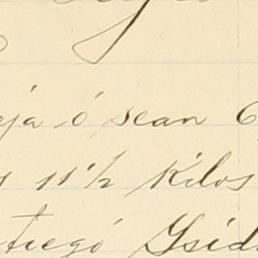 eja ó sean 6
s 11 1/2 Kilos
tregó Ysid